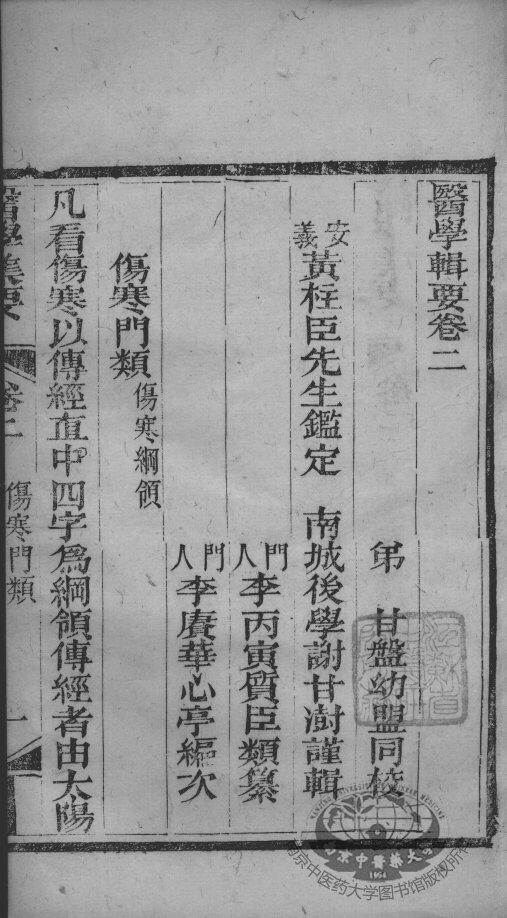 醫學輯要卷二
弟 甘盤幼盟同校
安義黃桂臣先生鑑定 南城後學謝甘澍謹輯
門人李丙寅質臣類纂
門人李賡華心亭編次
傷寒門類 傷寒綱領
凡看傷寒以傳經直中四字爲綱領傳經者由太陽
醫學集要 卷二 傷寒門類 一
南京中医药大学图书馆版权所有
南京中醫藥大學
1954